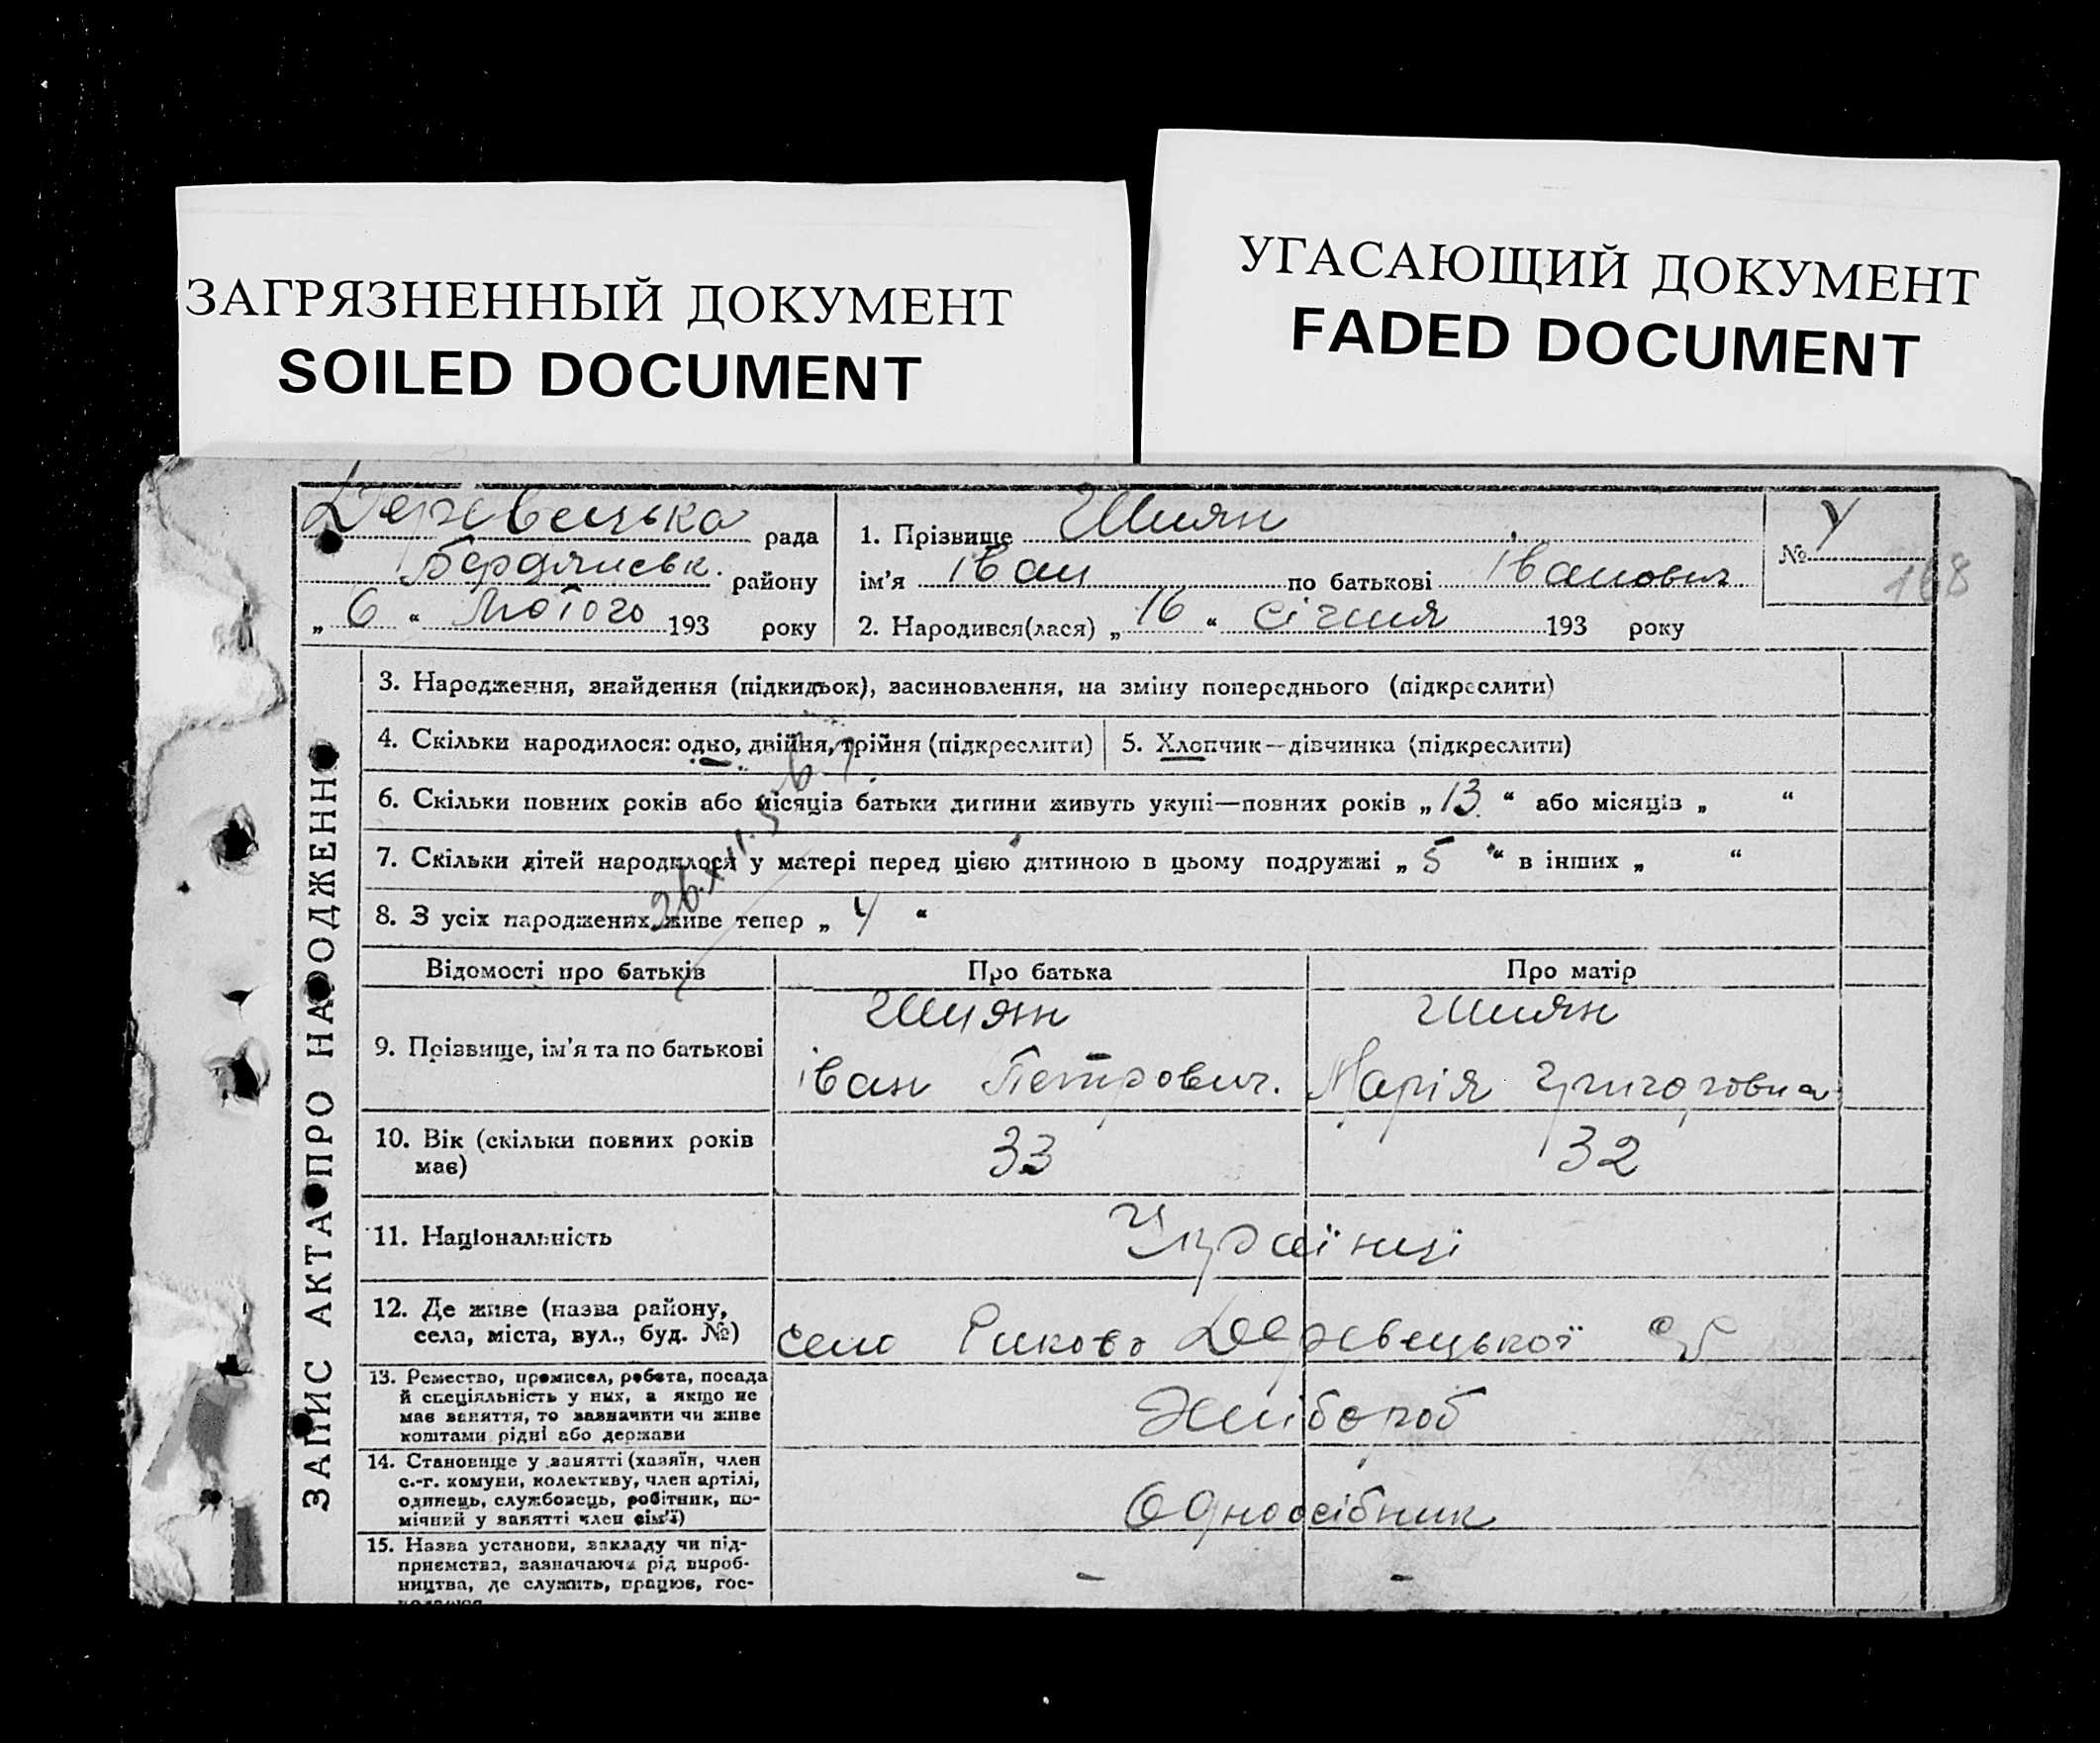 ЗАГРЯЗНЕННЫЙ ДОКУМЕНТ
SOILED DOCUMENT
УГАСАЮЩИЙ ДОКУМЕНТ
FADED DOCUMENT
Деревецька рада
району
„ 6 “ Лютого 193 року
1. Прізвище Шиян
ім’я Іван по батькові Іванович
2. Народився(лася) „ 16 “ січня 193 року
№ 4
168
ЗАПИС АКТА ПРО НАРОДЖЕНН
3. Народження, знайдення (підкидьок), засиновлення, на зміну попереднього (підкреслити)
4. Скільки народилося: одно, двійня, трійня (підкреслити)
5. Хлопчик—дівчинка (підкреслити)
6. Скільки повних років або місяців батьки дитини живуть укупі—повних років „ 13 “ або місяців „ “
7. Скільки дітей народилося у матері перед цією дитиною в цьому подружжі „ 5 “ в інших „ “
8. З усіх народжених живе тепер „ 4 “
Відомості про батьків Про батька Про матір
9. Прізвище, ім’я та по батькові
Шиян
Іван Петрович.
Шиян
Марія Григоровна
10. Вік (скільки повних років
має)
33
32
11. Національність
Українці
12. Де живе (назва району,
села, міста, вул., буд. №)
село Деревецької
13. Ремество, промисел, робота, посада
й спеціяльність у них, а якщо не
має заняття, то зазначити чи живе
коштами рідні або держави
Хлібороб
14. Становище у занятті (хазяїн, член
с.-г. комуни, колективу, член артілі,
одинець, службовець, робітник, по-
мічний у занятті член сім’ї)
Одноосібник
15. Назва установи, закладу чи під-
приємства, зазначаючи рід вироб-
ництва, де служить, працює, гос-
- -